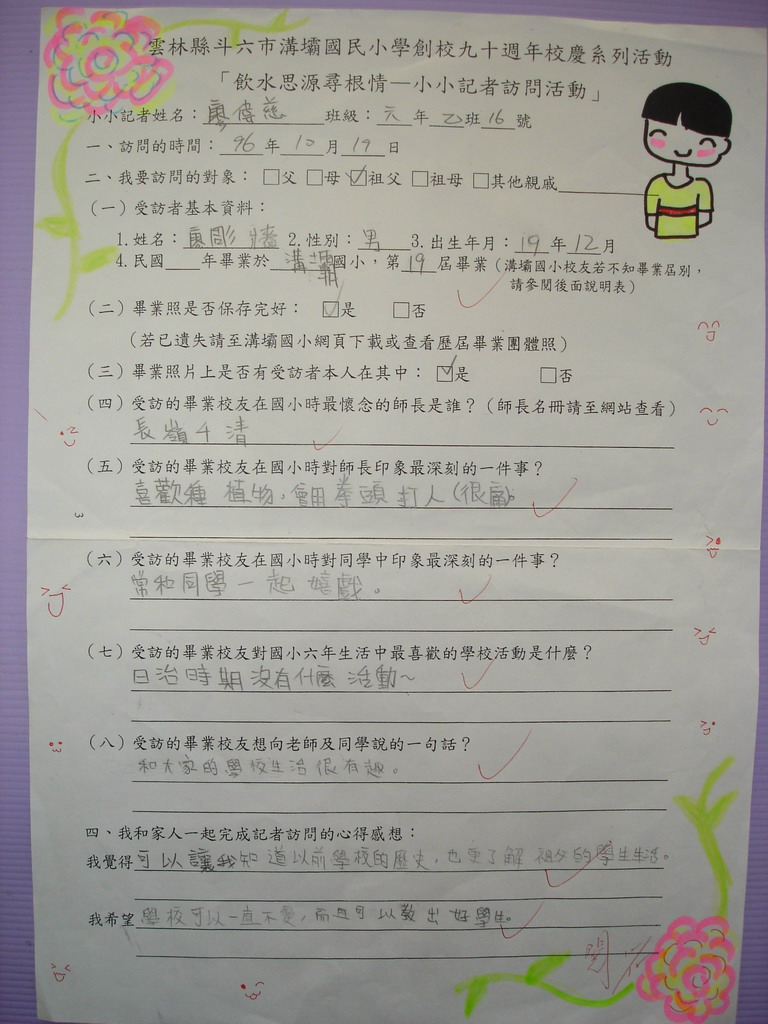 雲林縣斗六市溝壩國民小學創校九十週年校慶系列活動
「飲水思源尋根情—小小記者訪問活動」
小小記者姓名：廖偉慈 班級：六年乙班16號
一、訪問的時間：96年10月19日
二、我要訪問的對象：□父 □母 ☑祖父 □祖母 □其他親戚
（一）受訪者基本資料：
1.姓名：廖 2.性別：男 3.出生年月：19年12月
4.民國 年畢業於 溝壩國小，第19屆畢業（溝壩國小校友若不知畢業屆別，
請參閱後面說明表）
（二）畢業照是否保存完好： ☑是 □否
（若已遺失請至溝壩國小網頁下載或查看歷屆畢業團體照）
（三）畢業照片上是否有受訪者本人在其中： ☑是 □否
（四）受訪的畢業校友在國小時最懷念的師長是誰？（師長名冊請至網站查看）
長嶺 清
（五）受訪的畢業校友在國小時對師長印象最深刻的一件事？
喜歡種植物，會用拳頭打人(很
（六）受訪的畢業校友在國小時對同學中印象最深刻的一件事？
常和同學一起嬉戲。
（七）受訪的畢業校友對國小六年生活中最喜歡的學校活動是什麼？
日治時期沒有什麼活動~
（八）受訪的畢業校友想向老師及同學說的一句話？
和大家的學校生活很有趣。
四、我和家人一起完成記者訪問的心得感想：
我覺得可以讓我知道以前學校的歷史，也更了解祖父的學生生活。
我希望學校可以一直不變，而且可以教出好學生。
閱